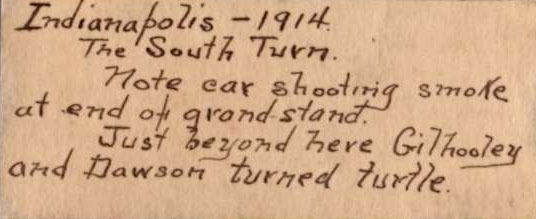 Indianapolis - 1914.
The South Turn.
Note car shooting smoke
at end of grand-stand.
Just beyond here Gilhooley
and Dawson turned turtle.